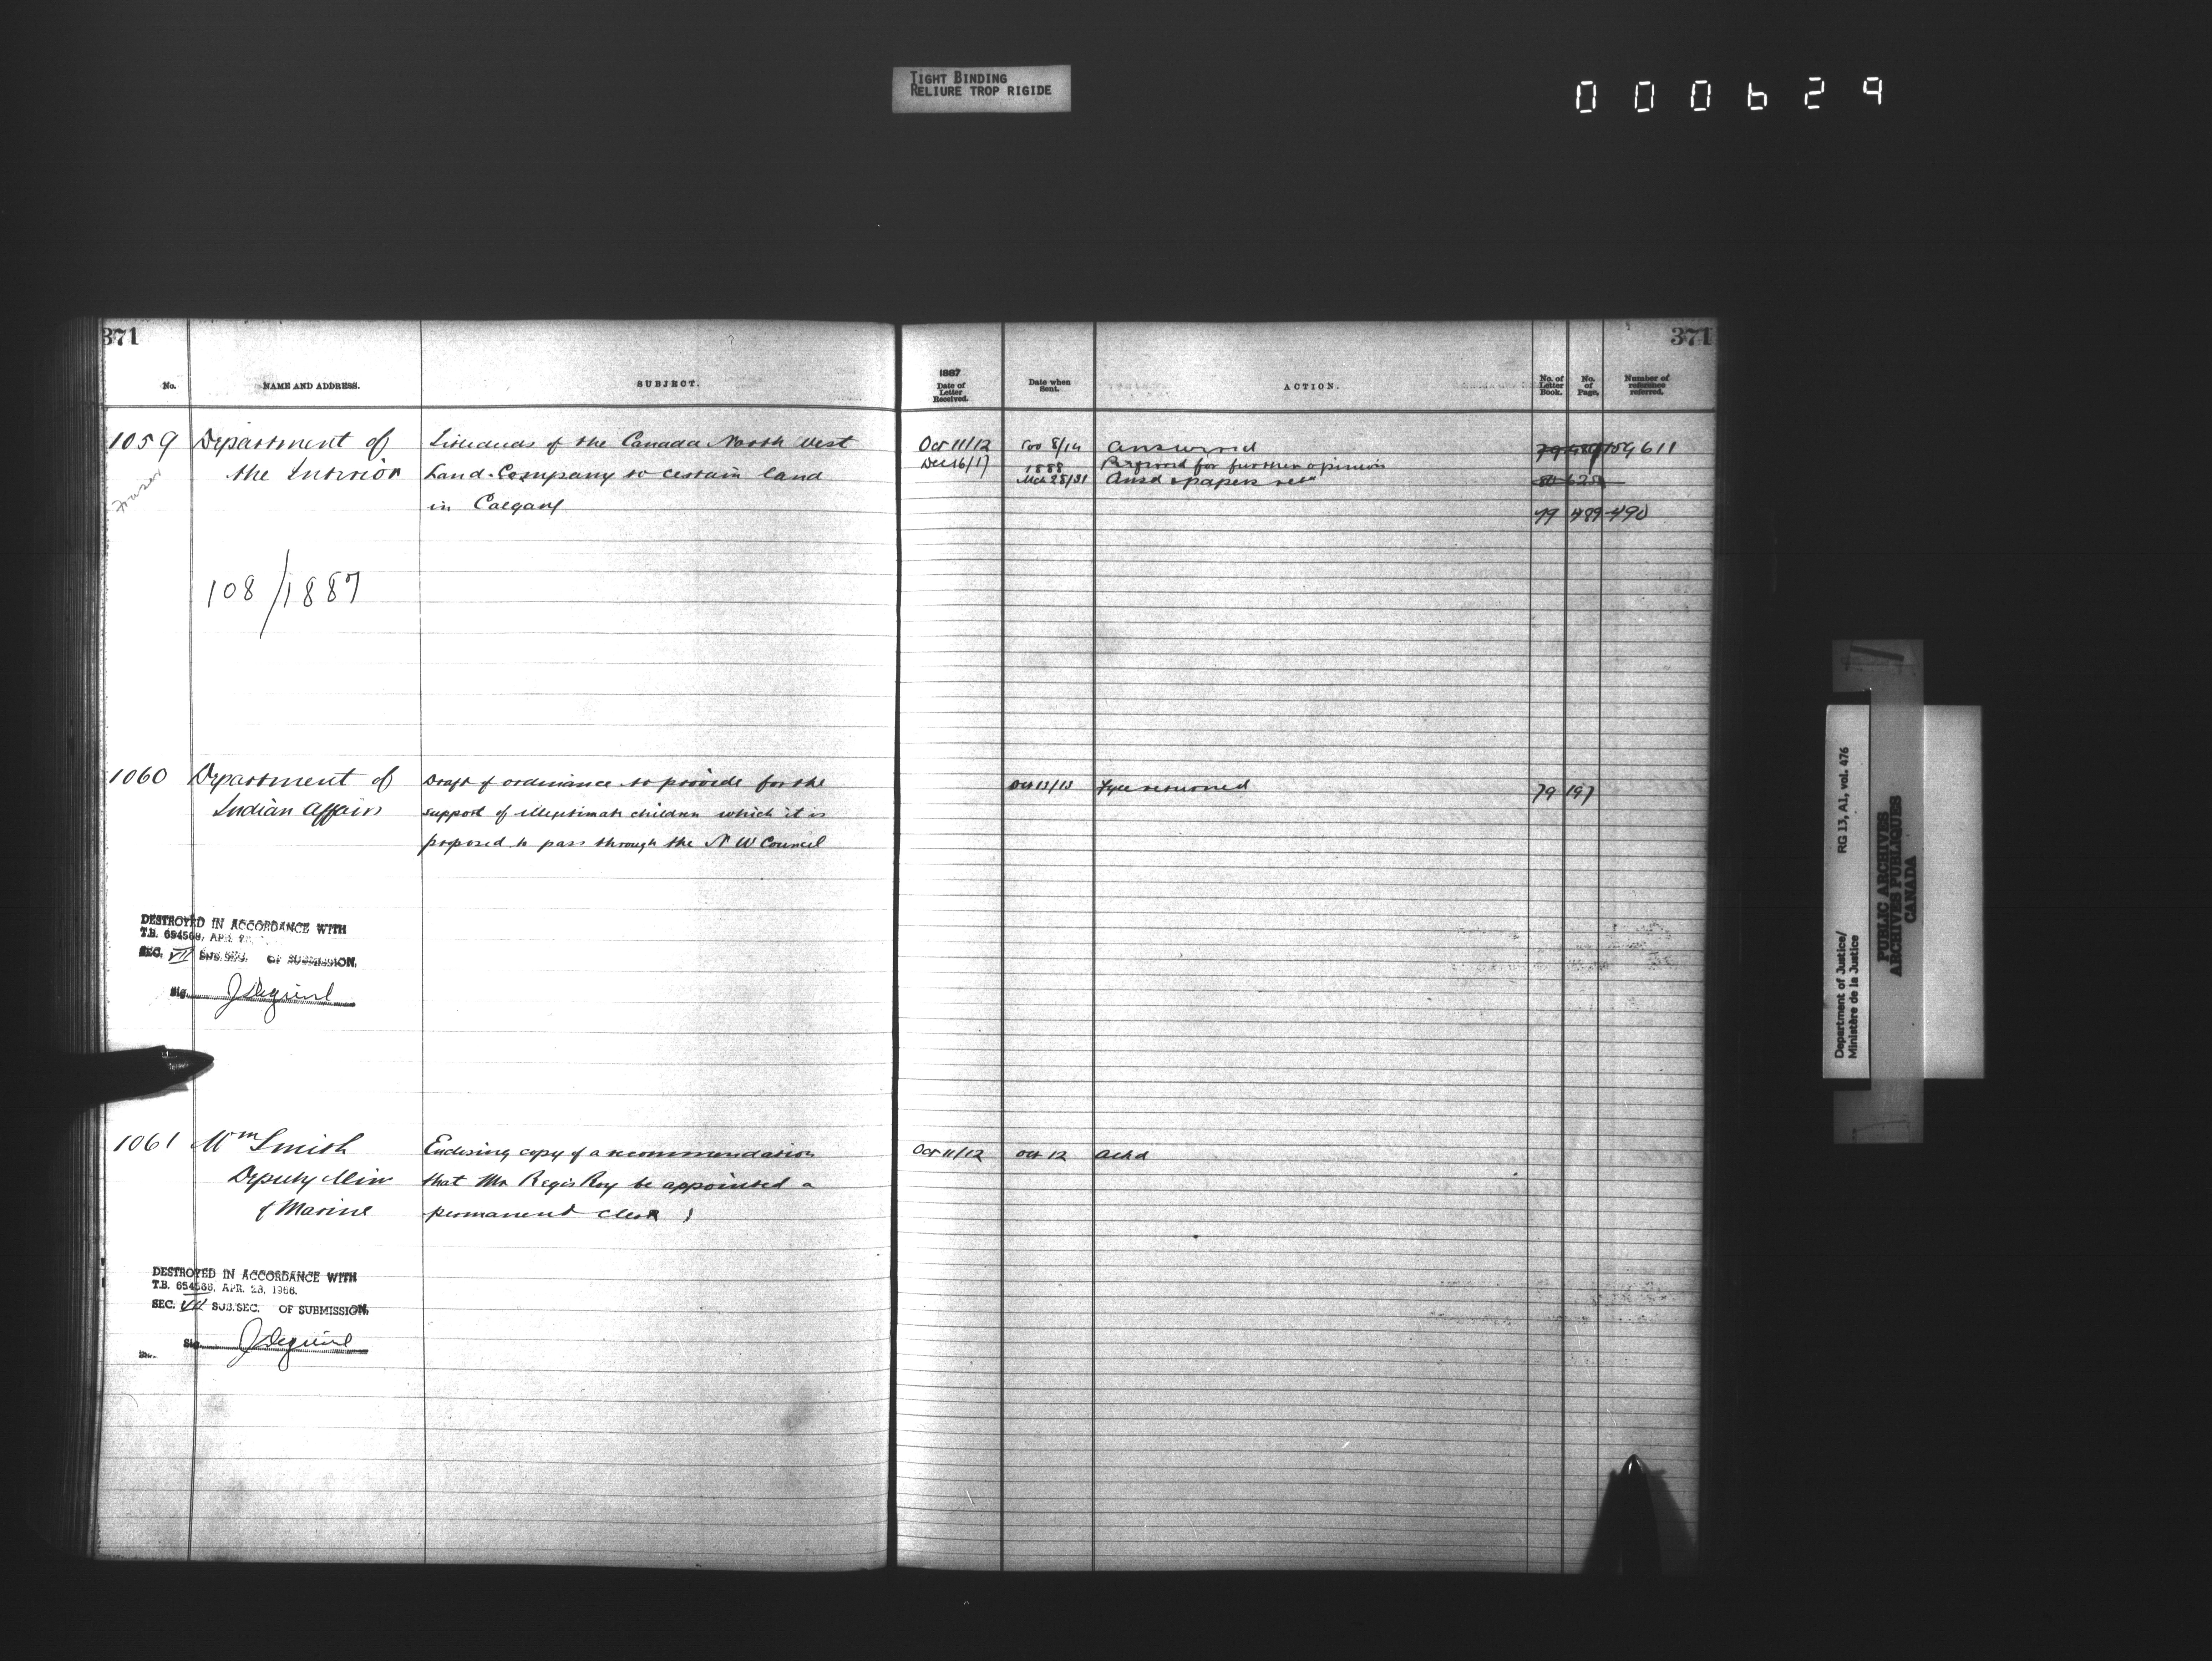 TIGHT BINDING
RELIURE TROP RIGIDE
000629
371
371
No.
NAME AND ADDRESS.
SUBJECT.
1887
Date of
Letter
Received.
Date when
Sent.
ACTION.
No. of
Letter
Book.
No.
of
Page.
Number of
reference
referred.
1059 Department of
the Interior
Fraser
of the Canada North West
Land Company to certain land
in Calgary
Oct 11/12
Dec 16/17
Nov 8/14
1888
Mch 28/31
Answered
for further opinion
Ansd & papers
611
79 489-490
108/1887
1060 Department of
Indian Affairs
Draft of ordinance to provide for the
support of illegitimate children which it is
proposed to pass through the N W Council
Oct 13/13
returned
79 197
DESTROYED IN ACCORDANCE WITH
T.B. 654568, APR.
SEC. VII SUB.SEC. OF SUBMISSION.
Sig.
1061 Wm Smith
Deputy Min
of Marine
Enclosing copy of a recommendation
that Mr Regis Roy be appointed a
permanent clerk
Oct 11/12
Oct 12
Ackd
DESTROYED IN ACCORDANCE WITH
T.B. 654568, APR. 28, 1966.
SEC. VII SUB.SEC. OF SUBMISSION.
Sig.
Department of Justice/
Ministère de la Justice
RG 13, A1, vol. 476
PUBLIC ARCHIVES
ARCHIVES PUBLIQUES
CANADA